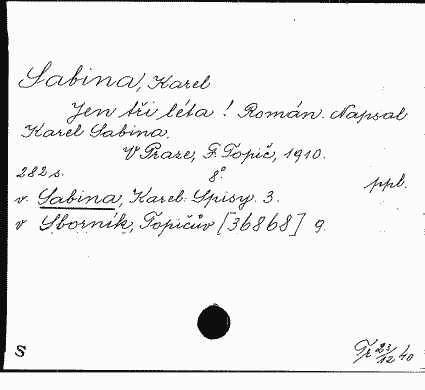 Sabina, Karel
Jen tři léta! Román. Napsal
Karel Sabina.
V Praze, F. Topič, 1910.
282 s. 8° ppl.
v. Sabina, Karel: Spisy. 3.
v Sborník, Topičův [36868] 9.
S 23/12 40